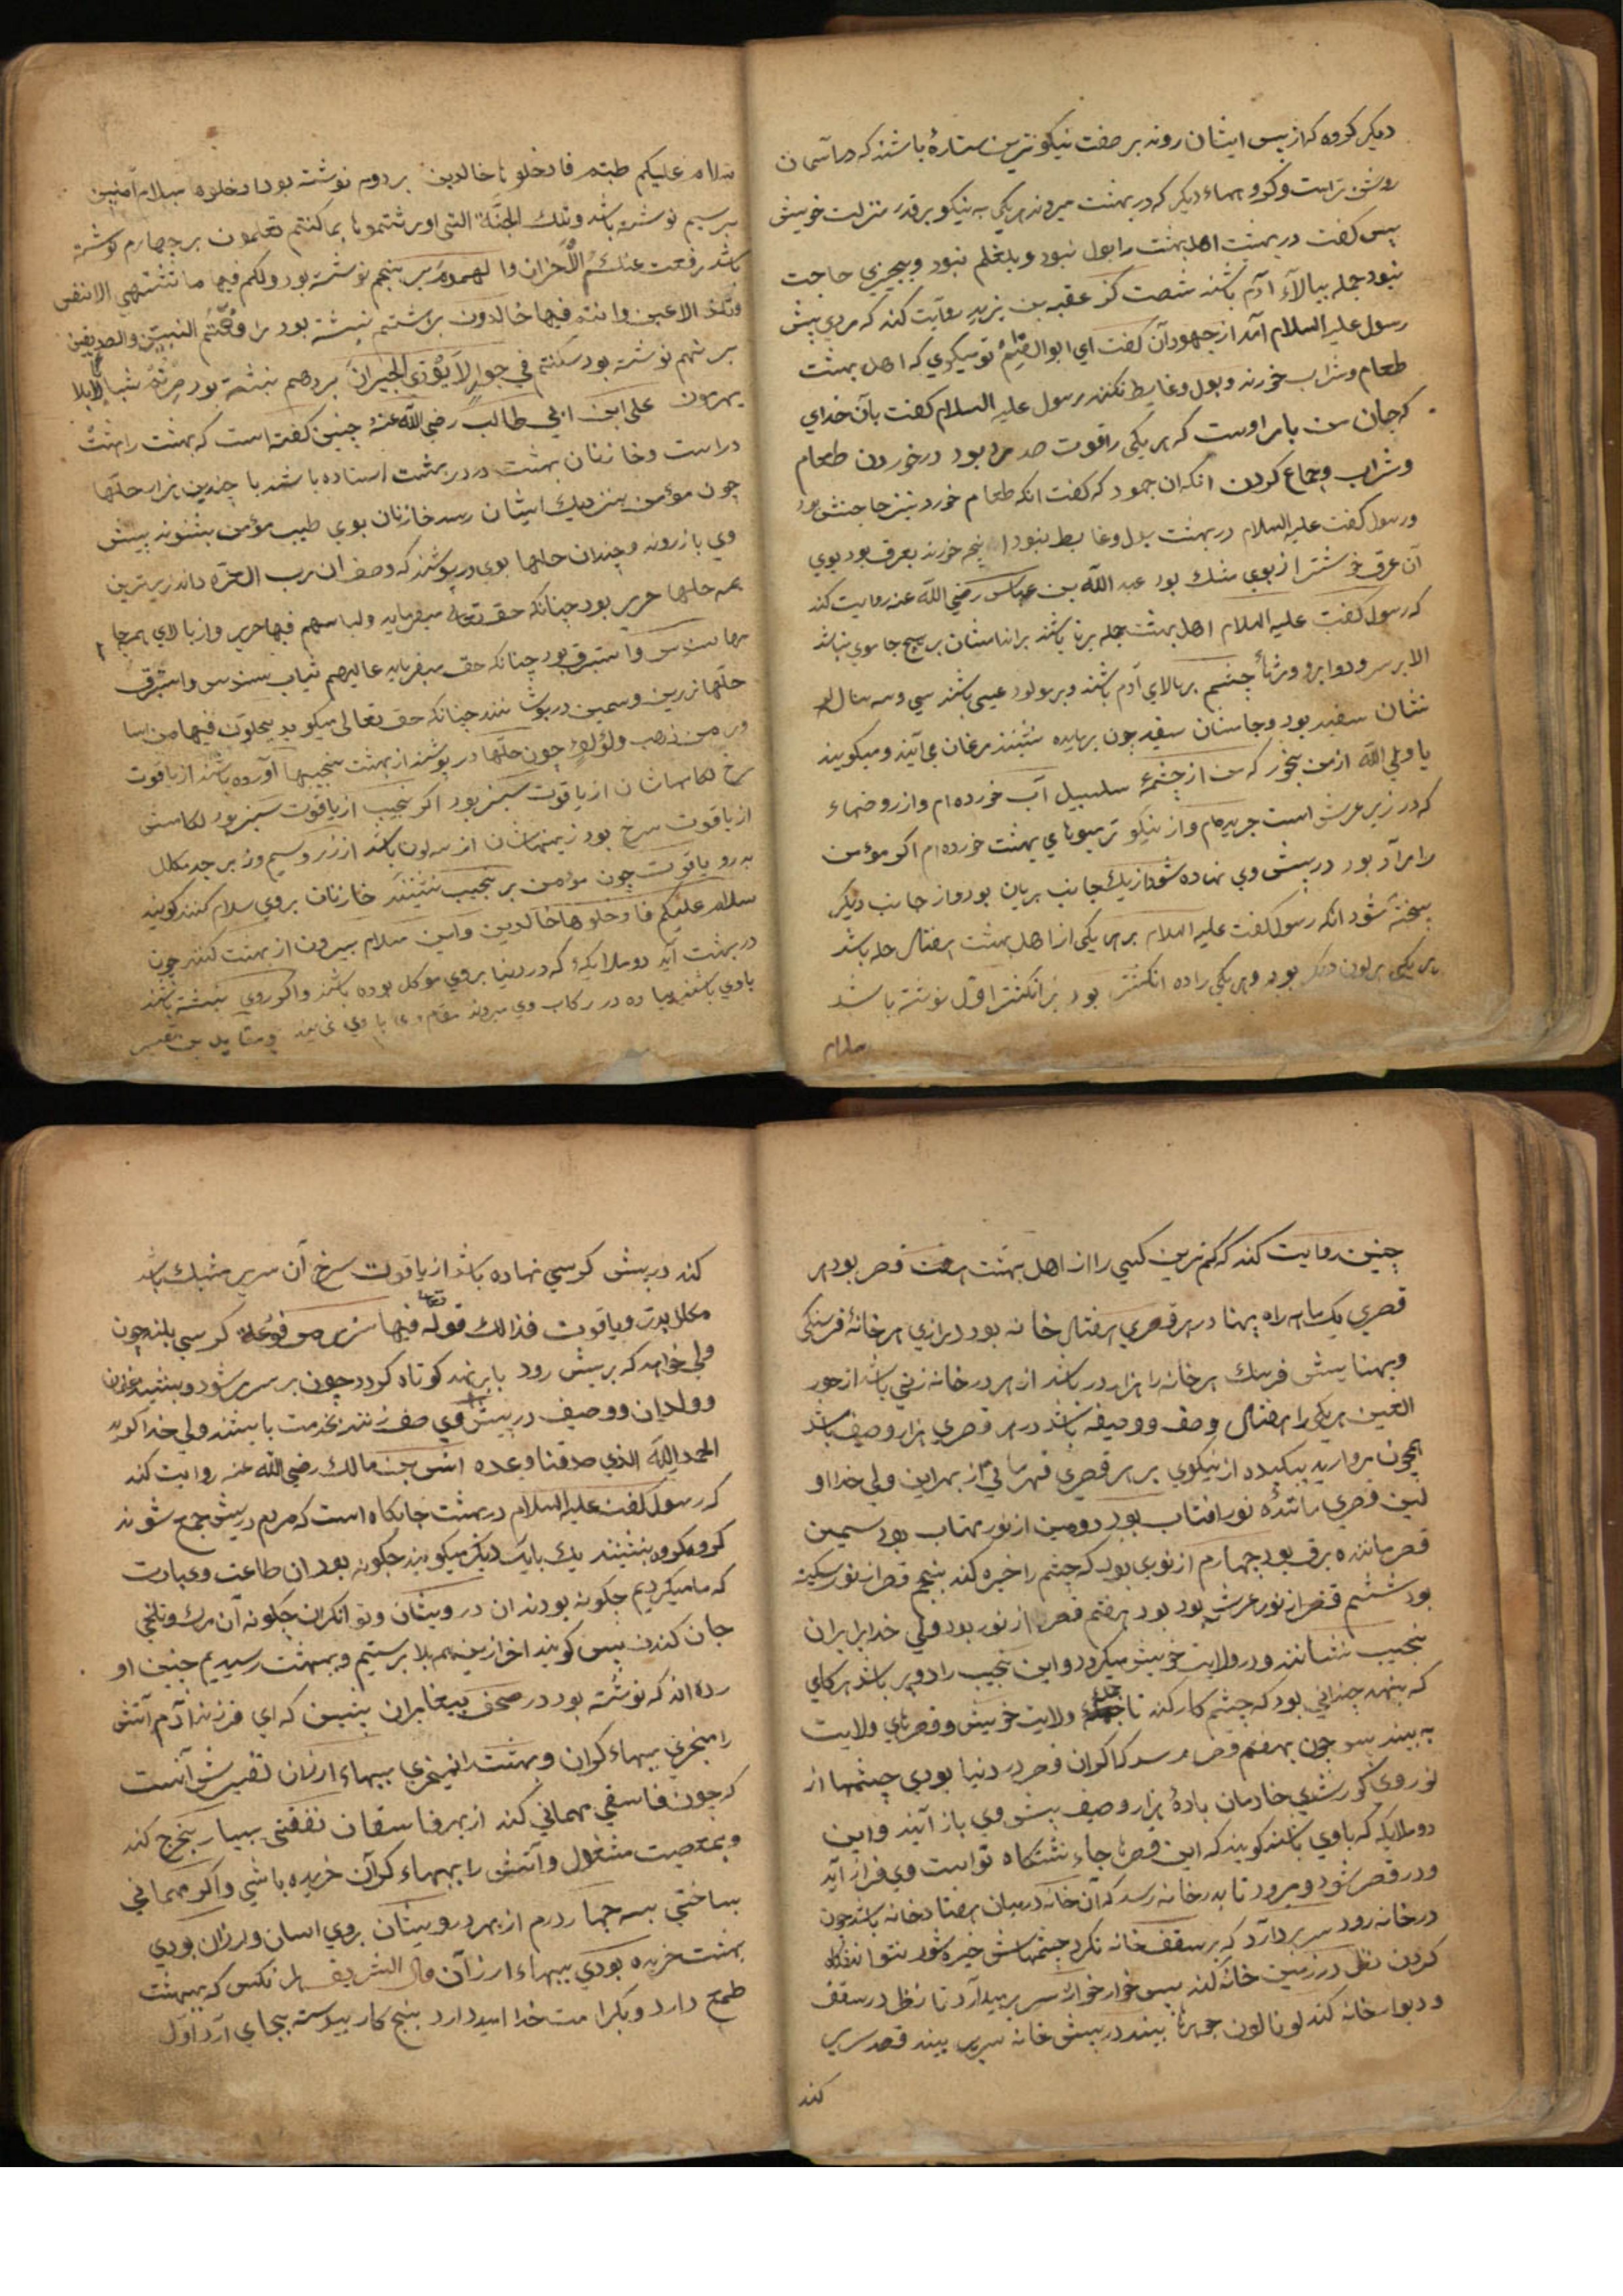 دیکر کروه که از پس ایشان روند بر صفت نیکوترین ستارهٔ باشند که در آسمان
روشن تر است وکروهماء دیکر که در بهشت میروند هر یکی به نیکو بر قدر منزلت خویش
پس کفت در بهشت اهل بهشت را بول نبود و بلغم نبود وبچیزی حاجت
نبود جمله ببالآء آدم باشند شصت کز عقبه بن یزید روایت کند که مردی پیش
رسول علیه السلام آمد از جهودان کفت ای ابوالقسم تو میکویی که اهل بهشت
طعام وشراب خورند وبول وغایط نکنند رسول علیه السلام کفت بآن خدای
که جان من بامر اوست که هر یکی را قوت صد مرد بود در خوردن طعام
وشراب وجماع کردن انکه ان جهود که کفت انکه طعام خورد بنیز حاجتش بود
ورسول کفت علیه السلام در بهشت بول وغایط نبود انچه خورند بعرق بود بوی
آن عرق خوشتر از بوی مشک بود عبد الله بن عباس رضی الله عنه روایت کند
که رسول کفت علیه السلام اهل بهشت جمله برنا باشند براندامشان بر هیچ جا موی نباشد
الا بر سر ودوابرو ومژهٔ چشم بر بالای آدم باشند وبر مولود عیسی باشند سی وسه سال
شان سفید بود وجامشان سفید چون بر مایده نشینند مرغان می آیند ومیکویند
یا ولی الله از من بخور که من از چشمهٔ سلسبیل آب خورده ام واز روضهاء
که در زیر عرش است چریده ام واز نیکو تر میوهای بهشت خورده ام اکر مؤمن
را مراد بود در پیش وی نهاده شود از یک جانب بریان بود واز جانب دیکر
پخته شود انکه رسول کفت علیه السلام بر هر یکی از اهل بهشت هفتاد حله باشد
هر یکی بر لون دیکر بود وهر یکی را ده انکشتری بود بر انکشتر اول نوشته باشد
سلام
سلام علیکم طبتم فادخلوها خالدین بر دوم نوشته بود ادخلوها بسلام آمنین
بر سیم نوشته باشد وتلک الجنّة التی اورثتموها بما کنتم تعلمون بر چهارم نوشته
باشد رفعت عنکم الأحزان والهموم بر پنجم نوشته بود ولکم فیها ما تشتهی الانفس
وتلذ الاعین وانتم فیها خالدون بر هشتم نبشته بود رافقتم النبیین والصدیقین
بر نهم نوشته بود سکنتم فی جوار لا یؤذی الجیران بر دهم نبشته بود صرتم شبابا لا
یهرمون علی ابن ابی طالب رضی الله عنه چنین کفته است که بهشت را هشت
در است وخازنان بهشت در در بهشت استاده باشند با چندین هزار حلّها
چون مؤمن بنزدیک ایشان رسد خازنان بوی طیب مؤمن بشنوند پیش
وی باز روند وچندان حلها بوی در پوشند که وصف ان رب العزّة داند زیرترین
همه حلها حریر بود چنانکه حق تعالی میفرماید ولباسهم فیها حریر واز بالای همه جا
مها سندس واستبرق بود چنانکه حق میفرماید عالیهم ثیاب سندس واستبرق
حلّها زرین وسمین در پوشانند چنانکه حق تعالی میکوید یحلون فیها من اسا
ور من ذهب ولؤلؤ چون حلّها در پوشند از بهشت نجیبها آورده باشند از یاقوت
سرخ لکامهاشان از یاقوت سبز بود اکر نجیب از یاقوت سبز بود لکامش
از یاقوت سرخ بود زینهاشان از سه لون باشد از زر وسیم وزبرجد مکلل
به در ویاقوت چون مؤمن بر نجیب نشیند خازنان بروی سلام کنند کویند
سلام علیکم فادخلوها خالدین واین سلام بیرون از بهشت کنند چون
در بهشت آید دو ملایکهٔ که در دنیا بروی موکل بوده باشند واکر وی نبشته باشند
باوی باشند پیاده در رکاب وی میروند مقام وی باوی
چنین روایت کند که کمترین کسی را از اهل بهشت هفت قصر بود هر
قصری یک ماهه راه پهنا در هر قصری هفتاد خانه بود درازی هر خانهٔ فرسنکی
وپهنایش فرسنک هر خانه را هزار در باشد از هر در خانه زنی باشد از حور
العین هر یکی را هفتاد وصف ووصیفه باشد در هر قصری هزار وصیف باشد
همچون مروارید از نیکوی بر هر قصری قهرمانی از بهر این ولی خدا او
لین قصری مانندهٔ نور افتاب بود دومین از نور مهتاب بود سیمین
قصر ماننده برق بود چهارم از نوری بود که چشم را خیره کند پنجم قصر از نور سکینه
بود ششم قصر از نور عرش بود هفتم قصر از نور بود ولی خدا بر ان
نجیب نشانند ودر ولایت خویش میکردد واین نجیب را دو پر باشد هر کامی
که بنهد چندانی بود که چشم کار کند تا جمله ولایت خویش وقصرهای ولایت
به بیند پس چون بهفتم قصر رسد که اکر ان قصر در دنیا بودی چشمها از
نور وی کور شدی خادمان با ده هزار وصیف پیش وی باز آیند واین
دو ملایکه که باوی باشند کویند که این قصرها جاء نشستکاه تو است وی فراز آید
ودر قصر شود ومیرود تا بدر خانه رسد که آن خانه در میان هفتاد خانه باشد چون
در خانه رود سر بر دارد که بر سقف خانه نکرد چشمهاش خیره شود نتواند نکاه
کردن نظر در زمین خانه کند پس خوار خوار سر بر میدارد تا نظر در سقف
ودیوار خانه کند لونا لون جوهرها بیند در پیش خانه سریر بیند قصد سریر
کند
کند در پیش کرسی نهاده باشد از یاقوت سرخ آن سریر مشبک باشد
مکلل بدر ویاقوت فذالک قوله تعالی فیها سرر مرفوعة کرسی بلند چون
ولی خواهد که بر پیش رود یا بر نهد کوتاه کردد چون بر سریر شود وبنشیند غلمان
وولدان ووصیف در پیش وی صف زنند بخدمت بایستند ولی خدا کوید
الحمد لله الذی صدقنا وعده انس بن مالک رضی الله عنه روایت کند
که رسول کفت علیه السلام در بهشت جایکاه است که مردم در پیش جمع شوند
کروه کروه بنشینند یک بایک دیکر میکویند چکونه بود ان طاعت وعبادت
که ما میکردیم چکونه بودند ان درویشان وتوانکران چکونه آن مرک وتلخی
جان کندن پس کویند اخر ازین همه بلا برستیم وبه بهشت رسیدیم چنین او
رده اند که نوشته بود در صحف پیغامبران پیشین که ای فرزند آدم آتش
را میخری ببهاء کران وبهشت را نمیخری ببهاء ارزان تفسیرش آنست
که چون فاسقی مهمانی کند از بهر فاسقان نفقتی بسیار بخرج کند
وبمعصیت مشغول وآتش را ببهاء کران خریده باشی واکر مهمانی
بساختی بسه چهار درم از بهر درویشان بروی اسان وارزان بودی
بهشت خریده بودی ببهاء ارزان قال الشریف هر انکس که ببهشت
طمع دارد وبکرامت خدا امید دارد پنج کار پیوسته بجای آرد اول